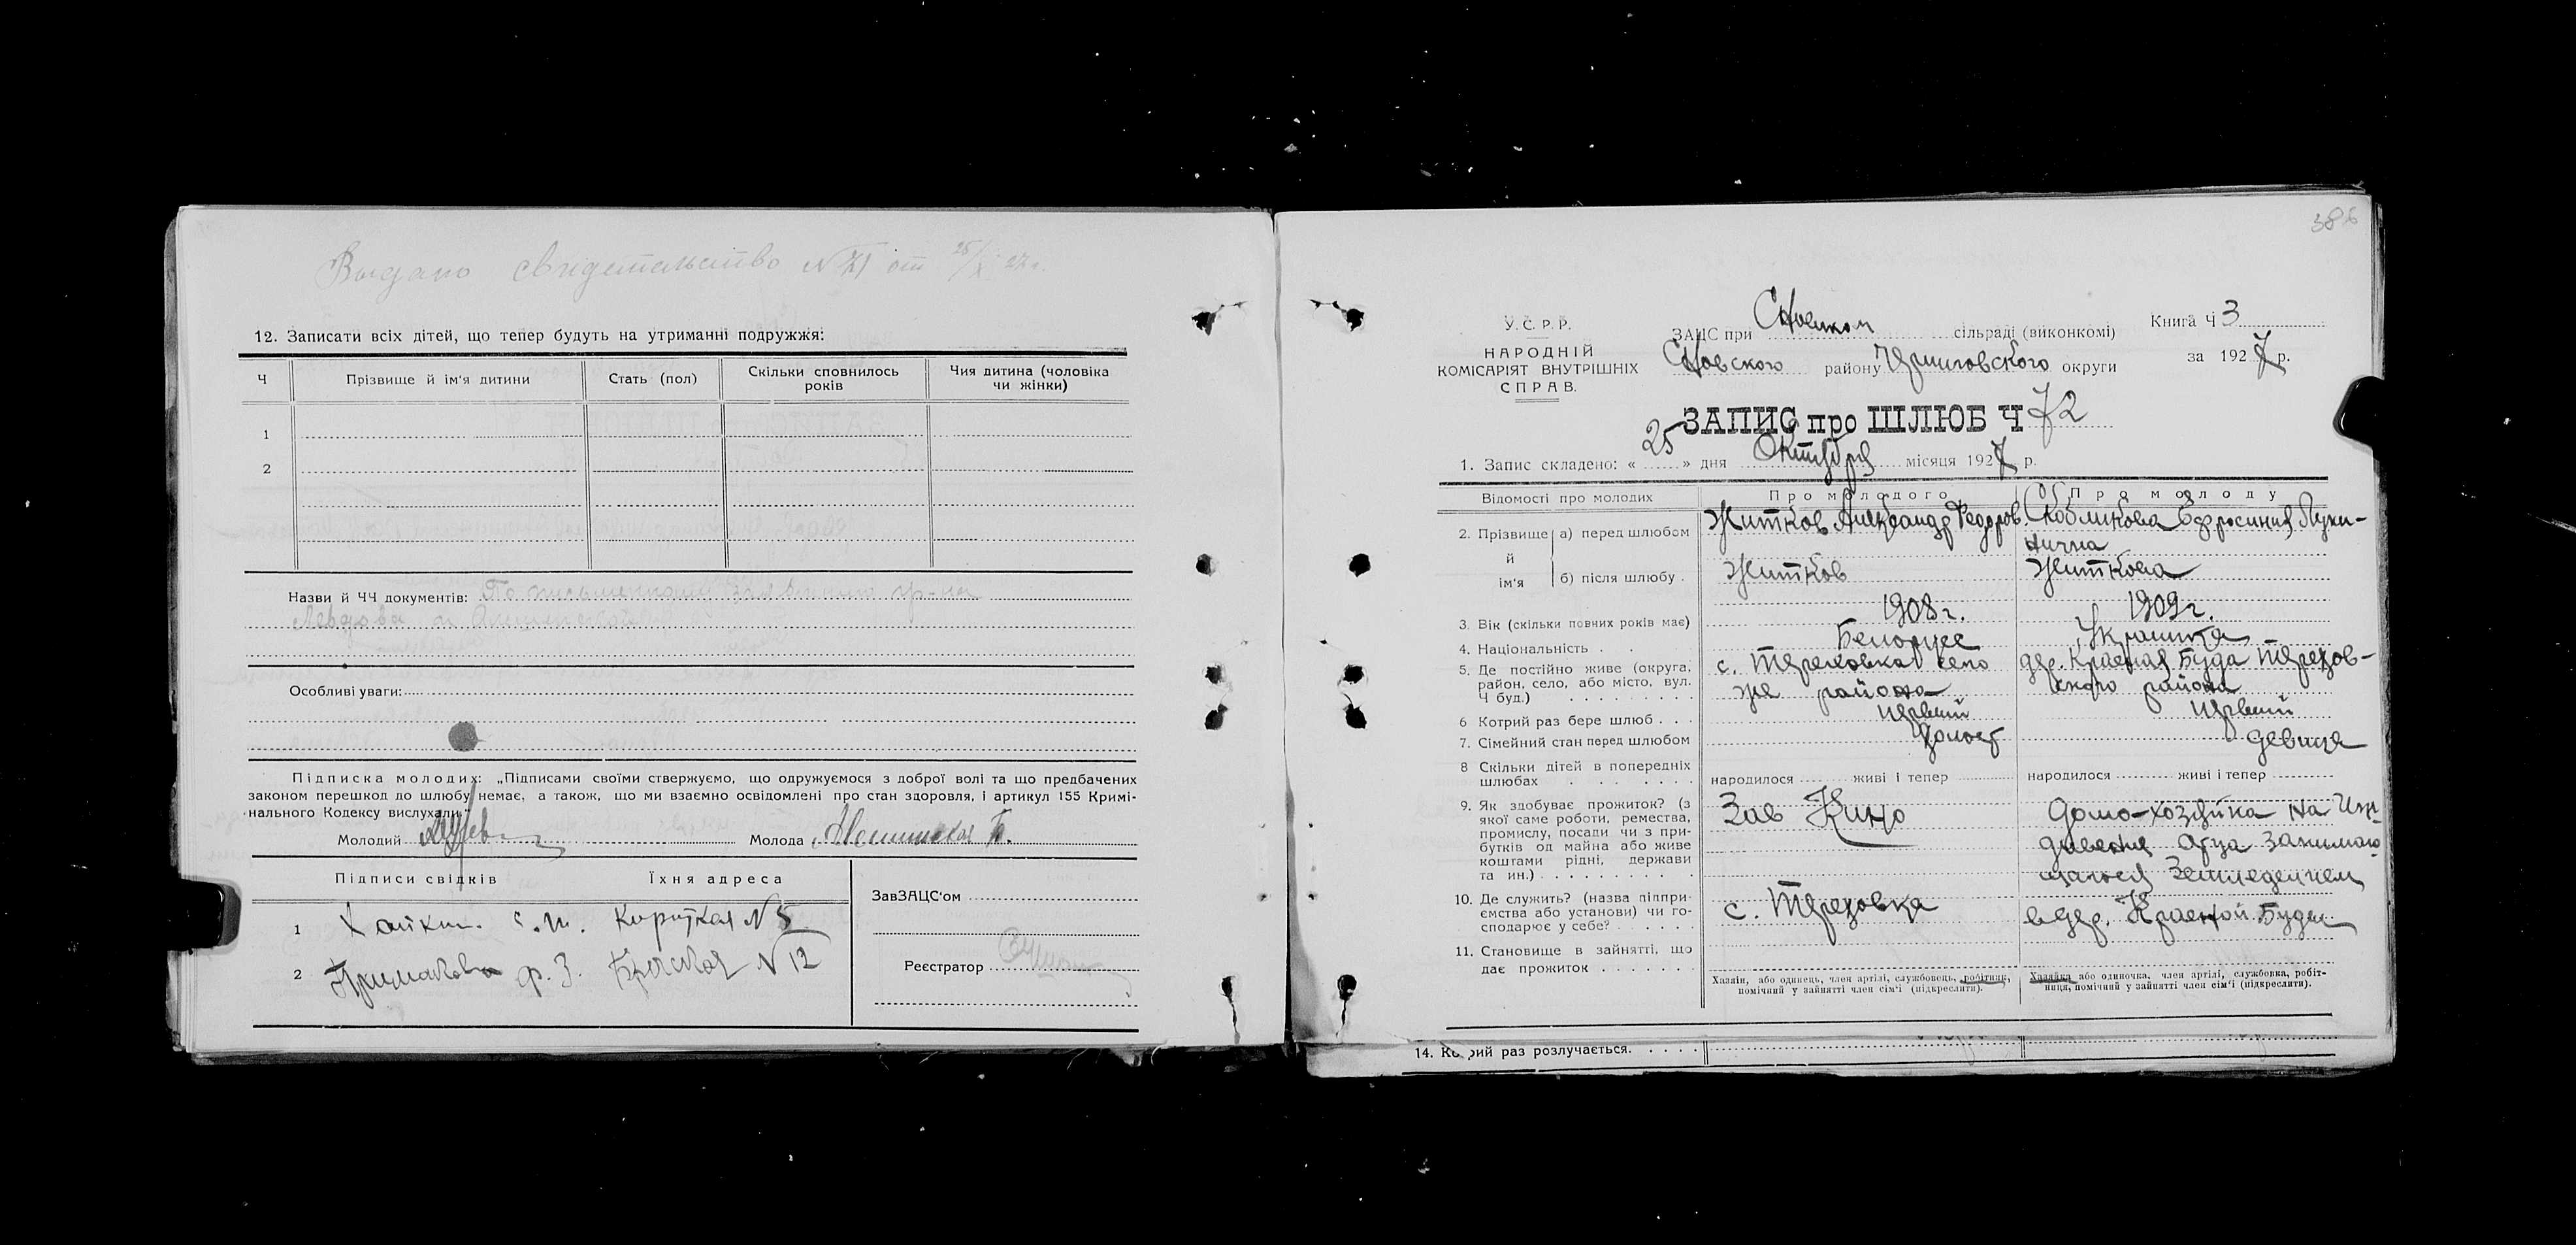 Выдано свидетельство N 71 от 25/X 27 г.
12. Записати всіх дітей, що тепер будуть на утриманні подружжя:
Ч Прізвище й ім'я дитини Стать (пол) Скільки сповнилось років Чия дитина (чоловіка чи жінки)
1
2
Назви й ЧЧ документів: По письменному гр-на
Особливі уваги:
Підписка молодих: „Підписами своїми стверджуємо, що одружуємося з доброї волі та що предбачених
законом перешкод до шлюбу немає, а також, що ми взаємно освідомлені про стан здоровля, і артикул 155 Кримі-
нального Кодексу вислухали.
Молодий Молода
Підписи свідків Їхня адреса
1 Хайкин Короткая N 5
2 Примакова Ф. З. N 12
ЗавЗАЦС'ом
Реєстратор
386
У.С.Р.Р.
НАРОДНІЙ
КОМІСАРІЯТ ВНУТРІШНІХ
СПРАВ.
ЗАЦС при Сновском сільраді (виконкомі)
Сновского району Черниговского округи
Книга Ч 3
за 1927 р.
ЗАПИС про ШЛЮБ Ч 72
1. Запис складено: « 25 » дня Октября місяця 1927 р.
Відомості про молодих Про молодого Про молоду
2. Прізвище й ім'я а) перед шлюбом Житков Александр Федоров. Скобликова Ефросиния Луки-
нична
б) після шлюбу . Житков Житкова
3. Вік (скільки повних років має) 1908 г. 1909 г.
4. Національність . . Белорусс Украинка
5. Де постійно живе (округа, с. Тереховка село дер. Красная Буда Терехов-
район, село, або місто, вул. же района ского района
Ч буд.) . . . . . . . .
6 Котрий раз бере шлюб . . . первый первый
7. Сімейний стан перед шлюбом холост девица
8 Скільки дітей в попередніх
шлюбах . . . . . . народилося живі і тепер народилося живі і тепер
9. Як здобуває прожиток? (з Зав Кино Домо-хозяйка на Иж-
якої саме роботи, ремества,
промислу, посади чи з при- дивении Отца занимаю
бутків од майна або живе
коштами рідні, держави щагося Земледелием
та ин.) . . . . . . . . .
10. Де служить? (назва підпри- с. Тереховка в дер. Красной Буды
ємства або установи) чи го-
сподарює у себе? . . . . .
11. Становище в зайнятті, що
дає прожиток . . . . . . .
Хазяїн, або одинець, член артілі, службовець, робітник,
помічний у зайнятті член сім'ї (підкреслити).
Хазяйка або одиночка, член артілі, службовка, робіт-
ниця, помічний у зайнятті член сім'ї (підкреслити).
14. Ко рий раз розлучається. . . . .